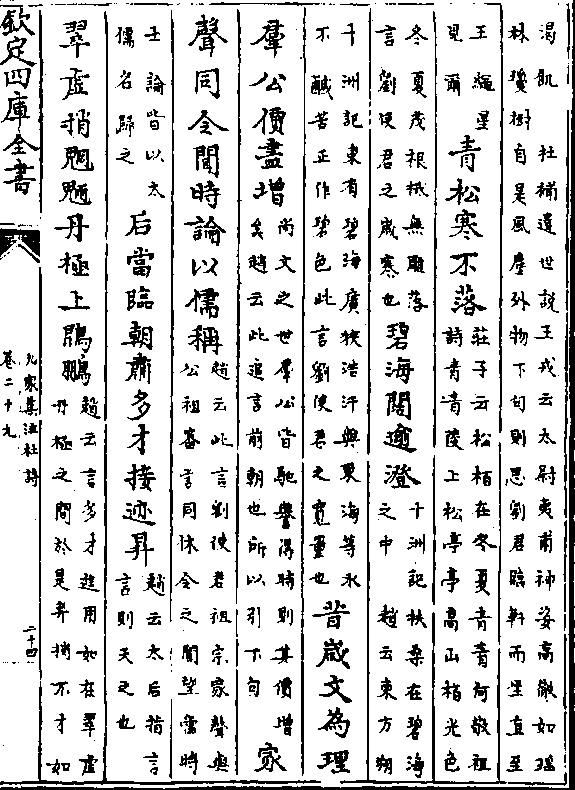 渴飢　杜補遺世說王戎云太尉夷甫神姿高徹如瑤
林瓊樹自是風塵外物下句則思劉君臨軒而坐直至
王繩星
見爾
青松寒不落
莊子云松栢在冬夏青青何敬祖
詩青青陵上松亭亭高山栢光色
冬夏茂根柢無彫落
言劉使君之歲寒也
碧海闊逾澄
十洲記扶桑在碧海
之中　趙云東方朔
十洲記東有碧海廣狹浩汗與東海等水
不鹹苦正作碧色此言劉使君之寬量也
昔歲文為理
羣公價盡增
尚文之世羣公皆馳譽得時則其價增
矣趙云此追言前朝也所以引下句
家
聲同令聞時論以儒稱
趙云此言劉使君祖宗家聲與
公祖審言同休令之聞望當時
士論皆以太
儒名歸之
后當臨朝肅多才接迹昇
趙云太后指言
言則天之也
翠虛捎魍魎丹極上鵾鵬
趙云言多才進用如在翠虛
丹極之間於是昇捎不才如
欽定四庫全書
九家集注杜詩
卷二十九
二十四